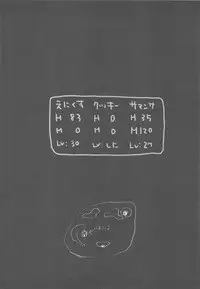 えにくす クッキー サマンサ
H 83 H 0 H 35
M 0 M 0 M120
Lv:30 Lv:しに Lv:27